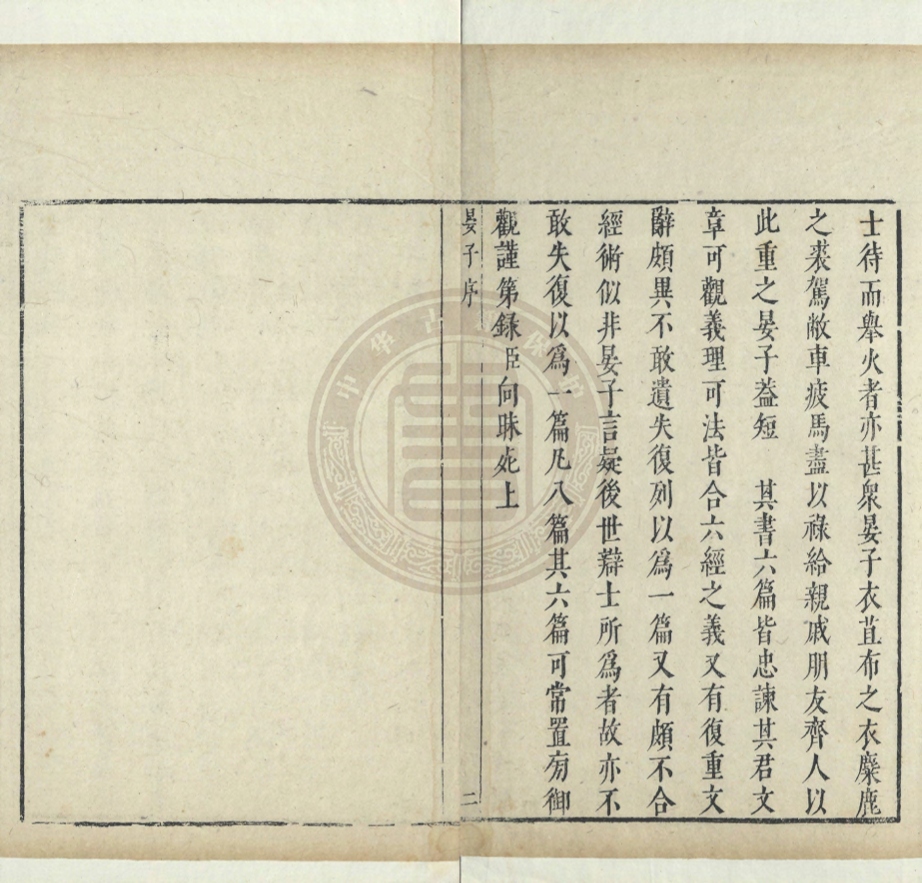 士待而舉火者亦甚衆晏子衣苴布之衣麋鹿
之裘駕敝車疲馬盡以祿給親戚朋友齊人以
此重之晏子葢短　其書六篇皆忠諫其君文
章可觀義理可法皆合六經之義又有復重文
辭頗異不敢遺失復列以爲一篇又有頗不合
經術似非晏子言疑後世辯士所爲者故亦不
敢失復以爲一篇凡八篇其六篇可常置旁御
觀謹第録臣向昧死上
晏子序
二
中华古
保护